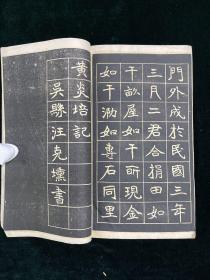 門外成於民國三年
三月二君合捐田如
干畝屋如干所現金
如干泐如專石同里
黃炎培記
吳縣汪克壎書